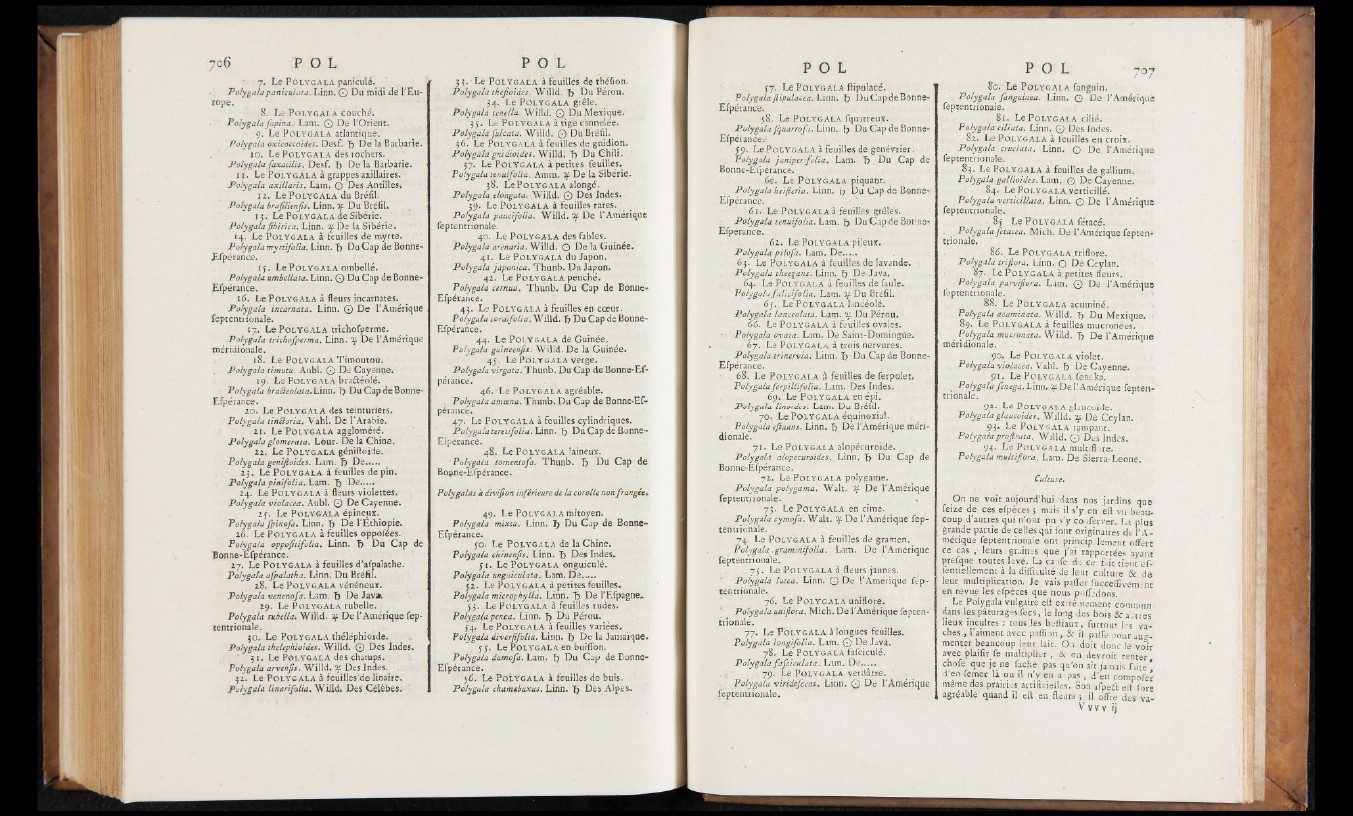 706 POL
7. Le POLYGALA paniculé.
Polygala paniculata. Linn. ☉ Du midi de l'Eu-
rope.
8. Le POLYGALA couché.
Polygala supina. Lam. ☉ De l'Orient.
9. Le POLYGALA atlantique.
Polygala oxicoccoides. Desf. ♄ De la Barbarie.
10. Le POLYGALA des rochers.
Polygala saxatilis. Desf. ♄ De la Barbarie.
11. Le POLYGALA à grappes axillaires.
Polygala axillaris. Lam. ☉ Des Antilles.
12. Le POLYGALA du Brésil.
Polygala brasiliensis. Linn. ♃ Du Brésil.
13. Le POLYGALA de Sibérie.
Polygala sibirica. Linn. ♃ De la Sibérie.
14. Le POLYGALA à feuilles de myrte.
Polygala myrtifolia. Linn. ♄ Du Cap de Bonne-
Espérance.
15. Le POLYGALA ombellé.
Polygala umbellata. Linn. ☉ Du Cap de Bonne-
Espérance.
16. Le POLYGALA à fleurs incarnates.
Polygala incarnata. Linn. ☉ De l'Amérique
septentrionale.
17. Le POLYGALA trichosperme.
Polygala trichosperma. Linn. ♃ De l'Amérique
méridionale.
18. Le POLYGALA Timoutou.
Polygala timutu. Aubl. ☉ De Cayenne.
19. Le POLYGALA bractéolé.
Polygala bracteolata. Linn. ♄ Du Cap de Bonne-
Espérance.
20. Le POLYGALA des teinturiers.
Polygala tinctoria. Vahl. De l'Arabie.
21. Le POLYGALA aggloméré.
Polygala glomerata. Lour. De la Chine.
22. Le POLYGALA génistoïde.
Polygala genistoides. Lam. ♄ De.....
23. Le POLYGALA à feuilles de pin.
Polygala pinifolia. Lam. ♄ De.....
24. Le POLYGALA à fleurs violettes.
Polygala violacea. Aubl. ☉ De Cayenne.
25. Le POLYGALA épineux.
Polygala spinosa. Linn. ♄ De l'Éthiopie.
26. Le POLYGALA à feuilles opposées.
Polygala oppositifolia. Linn. ♄ Du Cap de
Bonne-Espérance.
27. Le POLYGALA à feuilles d'aspalathe.
Polygala aspalatha. Linn. Du Brésil.
28. Le POLYGALA vénéneux.
Polygala venenosa. Lam. ♄ De Java.
29. Le POLYGALA rubelle.
Polygala rubella. Willd. ♃ De l'Amérique sep-
tentrionale.
30. Le POLYGALA théléphioïde.
Polygala thelephioides. Willd. ☉ Des Indes.
31. Le POLYGALA des champs.
Polygala arvensis. Willd. ♃ Des Indes.
32. Le POLYGALA à feuilles de linaire.
Polygala linarifolia. Willd. Des Célèbes.
POL
33. Le POLYGALA à feuilles de thésion.
Polygala thesioides. Willd. ♄ Du Pérou.
34. Le POLYGALA grêle.
Polygala tenella. Willd. ☉ Du Mexique.
35. Le POLYGALA à tige cannelée.
Polygala sulcata. Willd. ☉ Du Brésil.
36. Le POLYGALA à feuilles de gnidion.
Polygala gnidioides. Willd. ♄ Du Chili.
37. Le POLYGALA à petites feuilles.
Polygala tenuifolia. Amm. ♃ De la Sibérie.
38. Le POLYGALA alongé.
Polygala elongata. Willd. ☉ Des Indes.
39. Le POLYGALA à feuilles rares.
Polygala paucifolia. Willd. ♃ De l'Amérique
septentrionale.
40. Le POLYGALA des sables.
Polygala arenaria. Willd. ☉ De la Guinée.
41. Le POLYGALA du Japon.
Polygala japonica. Thunb. Du Japon.
42. Le POLYGALA penché.
Polygala cernua. Thunb. Du Cap de Bonne-
Espérance.
43. Le POLYGALA à feuilles en cœur.
Polygala cordifolia. Willd. ♄ Du Cap de Bonne-
Espérance.
44. Le POLYGALA de Guinée.
Polygala guineensis. Willd. De la Guinée.
45. Le POLYGALA verge.
Polygala virgata. Thunb. Du Cap de Bonne-Es-
pérance.
46. Le POLYGALA agréable.
Polygala amœna. Thunb. Du Cap de Bonne-Es-
pérance.
47. Le POLYGALA à feuilles cylindriques.
Polygala teretifolia. Linn. ♄ Du Cap de Bonne-
Espérance.
48. Le POLYGALA laineux.
Polygala tomentosa. Thunb. ♄ Du Cap de
Bonne-Espérance.
Polygalas à division inférieure de la corolle non frangée.
49. Le POLYGALA mitoyen.
Polygala mixta. Linn. ♄ Du Cap de Bonne-
Espérance.
50. Le POLYGALA de la Chine.
Polygala chinensis. Linn. ♄ Des Indes.
51. Le POLYGALA onguiculé.
Polygala unguiculata. Lam. De.....
52. Le POLYGALA à petites feuilles.
Polygala microphylla. Linn. ♄ De l'Espagne.
53. Le POLYGALA à feuilles rudes.
Polygala penea. Linn. ♄ Du Pérou.
54. Le POLYGALA à feuilles variées.
Polygala diversifolia. Linn. ♄ De la Jamaïque.
55. Le POLYGALA en buisson.
Polygala dumosa. Lam. ♄ Du Cap de Bonne-
Espérance.
56. Le POLYGALA à feuilles de buis.
Polygala chamæbuxus. Linn. ♄ Des Alpes.
POL
57. Le POLYGALA stipulacé.
Polygala stipulacea. Linn. ♄ Du Cap de Bonne-
Espérance.
58. Le POLYGALA squarreux.
Polygala squarrosa. Linn. ♄ Du Cap de Bonne-
Espérance.
59. Le POLYGALA à feuilles de genévrier.
Polygala juniperifolia. Lam. ♄ Du Cap de
Bonne-Espérance.
60. Le POLYGALA piquant.
Polygala heisteria. Linn. ♄ Du Cap de Bonne-
Espérance.
61. Le POLYGALA à feuilles grêles.
Polygala tenuifolia. Lam. ♄ Du Cap de Bonne-
Espérance.
62. Le POLYGALA pileux.
Polygala pilosa. Lam. De.....
63. Le POLYGALA à feuilles de lavande.
Polygala theezans. Linn. ♄ De Java.
64. Le POLYGALA à feuilles de saule.
Polygala salicifolia. Lam. ♃ Du Brésil.
65. Le POLYGALA lancéolé.
Polygala lanceolata. Lam. ♃ Du Pérou.
66. Le POLYGALA à feuilles ovales.
Polygala ovata. Lam. De Saint-Domingue.
67. Le POLYGALA à trois nervures.
Polygala trinervia. Linn. ♄ Du Cap de Bonne-
Espérance.
68. Le POLYGALA à feuilles de serpolet.
Polygala serpillifolia. Lam. Des Indes.
69. Le POLYGALA en épi.
Polygala linoides. Lam. Du Brésil.
70. Le POLYGALA équinoxial.
Polygala æstuans. Linn. ♄ De l'Amérique méri-
dionale.
71. Le POLYGALA alopécuroïde.
Polygala alopecuroides. Linn. ♄ Du Cap de
Bonne-Espérance.
72. Le POLYGALA polygame.
Polygala polygama. Walt. ♃ De l'Amérique
septentrionale.
73. Le POLYGALA en cime.
Polygala cymosa. Walt. ♃ De l'Amérique sep-
tentrionale.
74. Le POLYGALA à feuilles de gramen.
Polygala graminifolia. Lam. De l'Amérique
septentrionale.
75. Le POLYGALA à fleurs jaunes.
Polygala lutea. Linn. ☉ De l'Amérique sep-
tentrionale.
76. Le POLYGALA uniflore.
Polygala uniflora. Mich. De l'Amérique septen-
trionale.
77. Le POLYGALA à longues feuilles.
Polygala longifolia. Lam. ☉ De Java.
78. Le POLYGALA fasciculé.
Polygala fasciculata. Lam. De.....
79. Le POLYGALA verdâtre.
Polygala viridescens. Linn. ☉ De l'Amérique
septentrionale.
POL 707
80. Le POLYGALA sanguin.
Polygala sanguinea. Linn. ☉ De l'Amérique
septentrionale.
81. Le POLYGALA cilié.
Polygala ciliata. Linn. ☉ Des Indes.
82. Le POLYGALA à feuilles en croix.
Polygala cruciata. Linn. ☉ De l'Amérique
septentrionale.
83. Le POLYGALA à feuilles de gallium.
Polygala gallioides. Lam. ☉ De Cayenne.
84. Le POLYGALA verticillé.
Polygala verticillata. Linn. ☉ De l'Amérique
septentrionale.
85. Le POLYGALA sétacé.
Polygala setacea. Mich. De l'Amérique septen-
trionale.
86. Le POLYGALA triflore.
Polygala triflora. Linn. ☉ De Ceylan.
87. Le POLYGALA à petites fleurs.
Polygala parviflora. Lam. ☉ De l'Amérique
septentrionale.
88. Le POLYGALA acuminé.
Polygala acuminata. Willd. ♄ Du Mexique.
89. Le POLYGALA à feuilles mucronées.
Polygala mucronata. Willd. ♄ De l'Amérique
méridionale.
90. Le POLYGALA violet.
Polygala violacea. Vahl. ♄ De Cayenne.
91. Le POLYGALA seneka.
Polygala senega. Linn. ♃ De l'Amérique septen-
trionale.
92. Le POLYGALA glaucoïde.
Polygala glaucoides. Willd. ♃ De Ceylan.
93. Le POLYGALA rampant.
Polygala prostrata. Willd. ☉ Des Indes.
94. Le POLYGALA multiflore.
Polygala multiflora. Lam. De Sierra-Leone.
Culture.
On ne voit aujourd'hui dans nos jardins que
seize de ces espèces; mais il s'y en est vu beau-
coup d'autres qui n'ont pu s'y conserver. La plus
grande partie de celles qui sont originaires de l'A-
mérique septentrionale ont principalement offert
ce cas, leurs graines que j'ai rapportées ayant
presque toutes levé. La cause de ce fait tient es-
sentiellement à la difficulté de leur culture & de
leur multiplication. Je vais passer successivement
en revue les espèces que nous possédons.
Le Polygala vulgaire est extrêmement commun
dans les pâturages secs, le long des bois & autres
lieux incultes : tous les bestiaux, surtout les va-
ches, l'aiment avec passion, & il passe pour aug-
menter beaucoup leur lait. On doit donc le voir
avec plaisir se multiplier, & on devroit tenter,
chose que je ne sache pas qu'on ait jamais faite,
d'en semer là où il n'y en a pas, d'en composer
même des prairies artificielles. Son aspect est fort
agréable quand il est en fleurs; il offre des va-
Vvvv ij